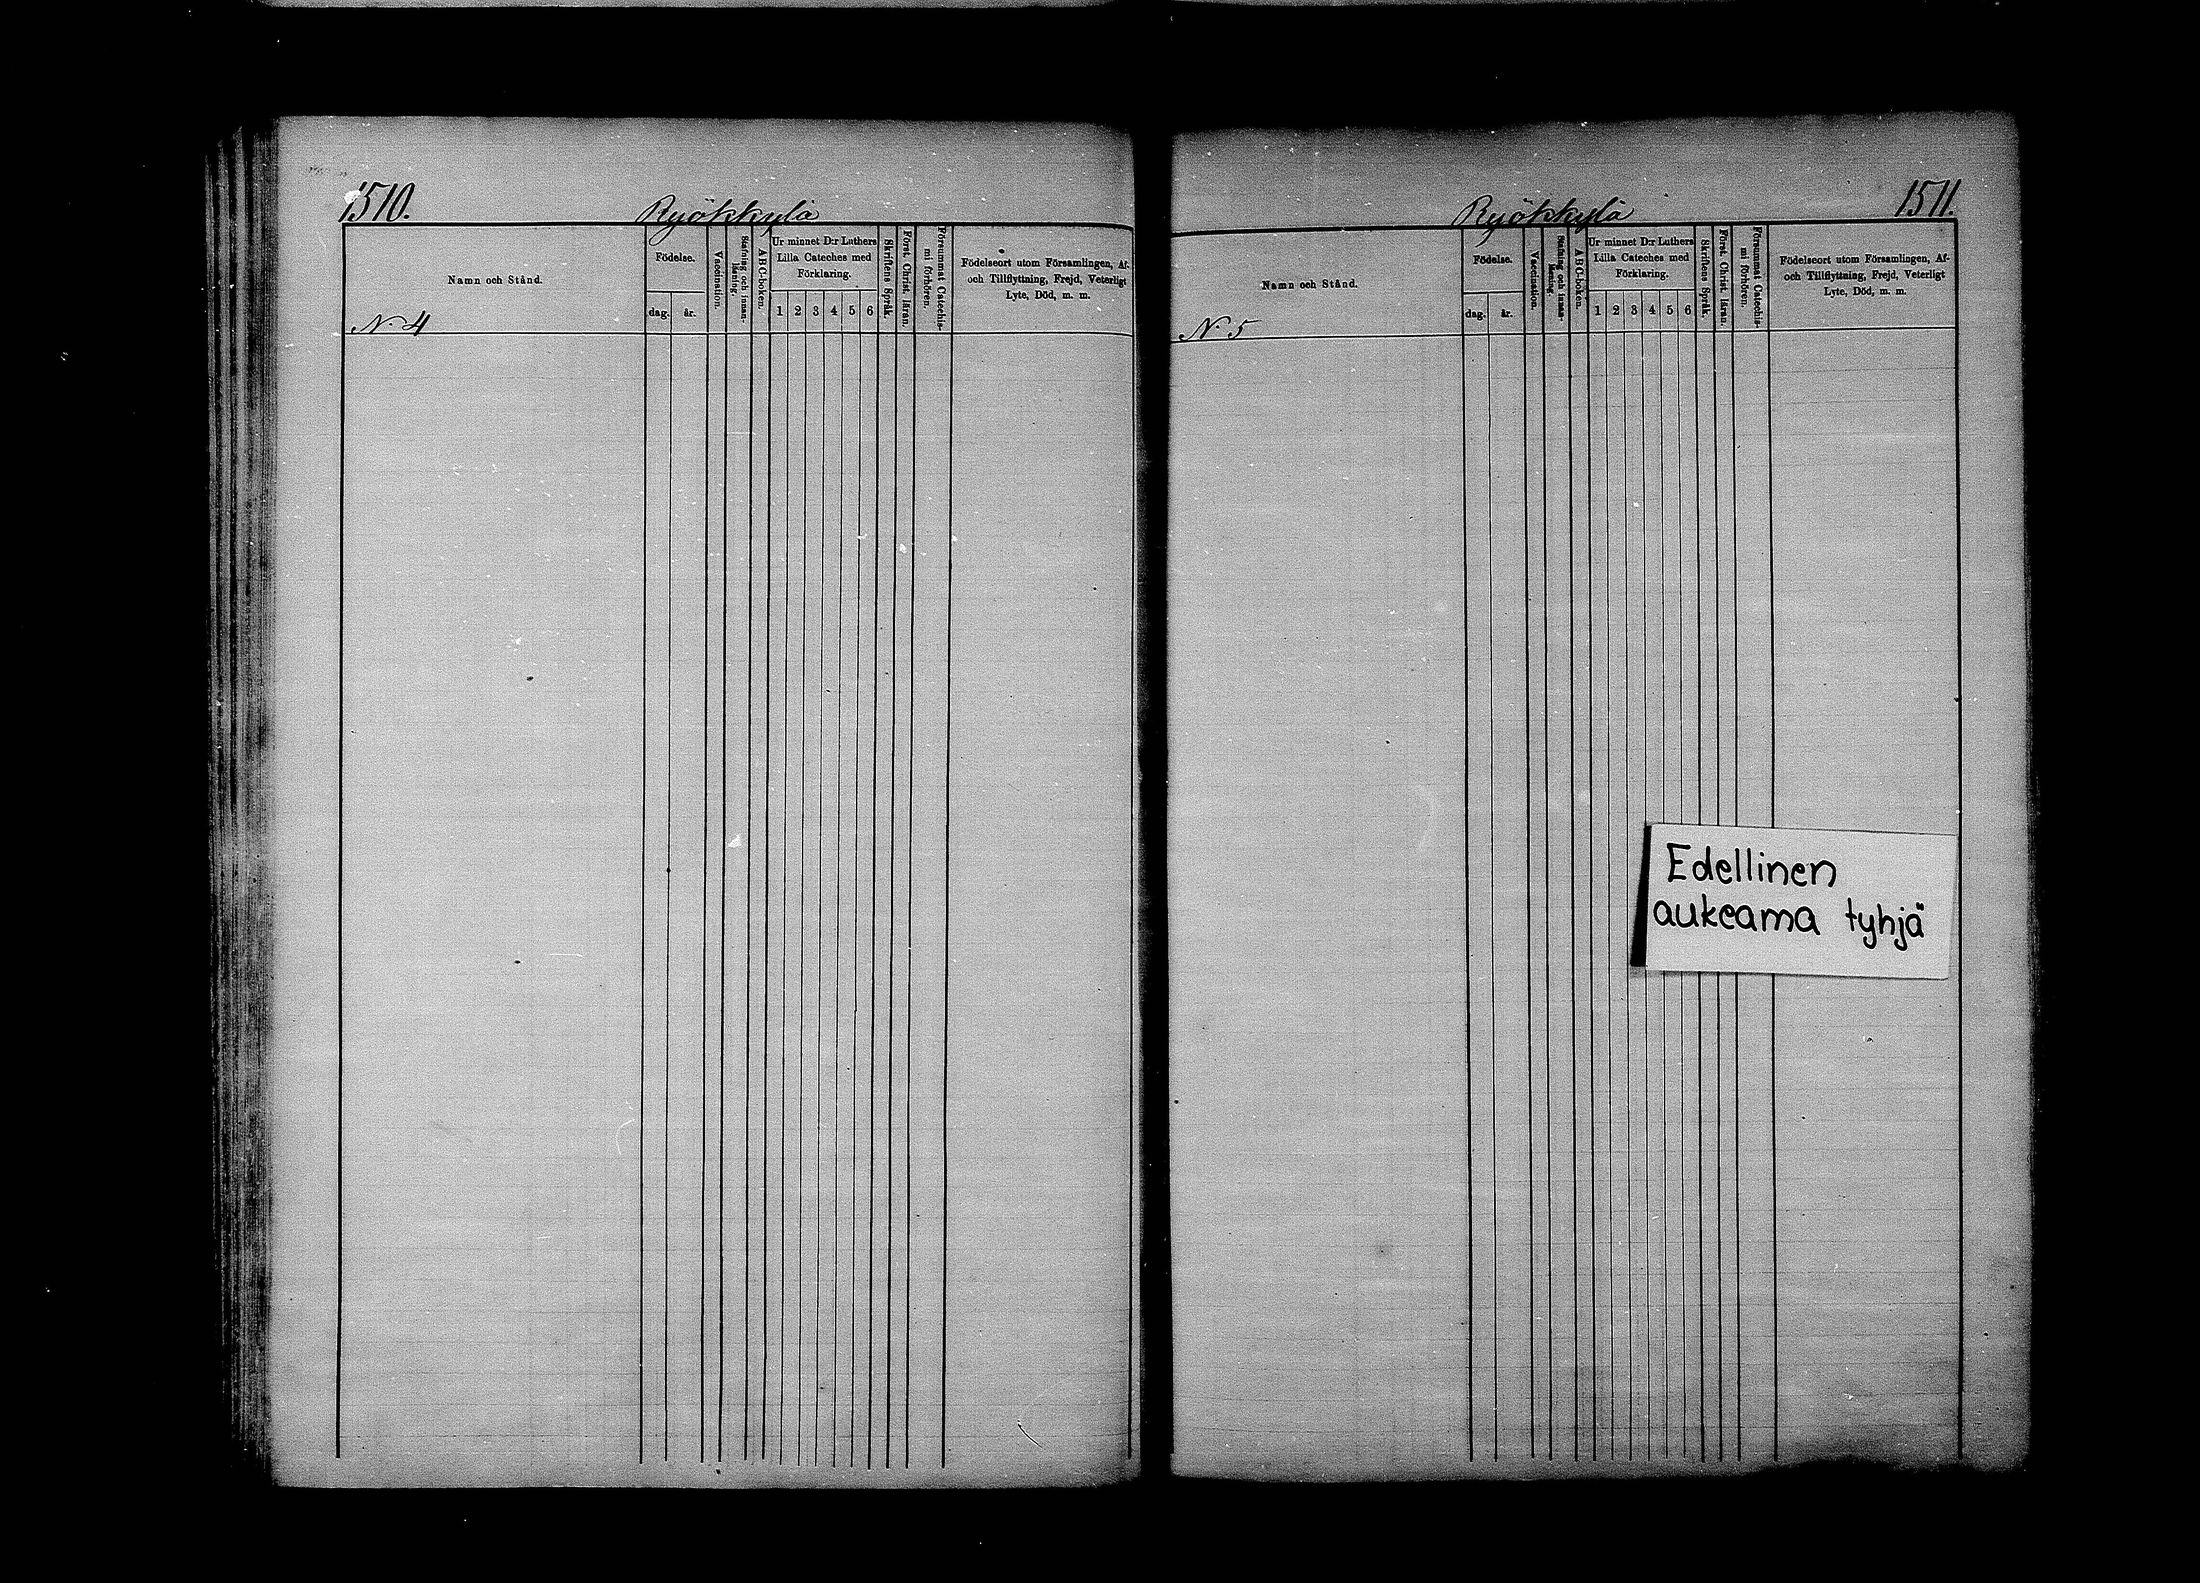 1510.
Ryökkylä
Namn och Stånd.
Födelse.
dag.
år.
Vaccination.
Stafning och innan-
läsning.
ABC-boken.
Ur minnet D:r Luthers
Lilla Cateches med
Förklaring.
1 2 3 4 5 6
Skriftens Språk.
Först. Christ. läran.
Försummat Catechis-
mi förhören.
Födelseort utom Församlingen, Af-
och Tillflyttning, Frejd, Veterligt
Lyte, Död, m. m.
N. 4
Ryökkylä
1511.
Namn och Stånd.
Födelse.
dag.
år.
Vaccination.
Stafning och innan-
läsning.
ABC-boken.
Ur minnet D:r Luthers
Lilla Cateches med
Förklaring.
1 2 3 4 5 6
Skriftens Språk.
Först. Christ. läran.
Försummat Catechis-
mi förhören.
Födelseort utom Församlingen, Af-
och Tillflyttning, Frejd, Veterligt
Lyte, Död, m. m.
N. 5
Edellinen
aukeama tyhjä